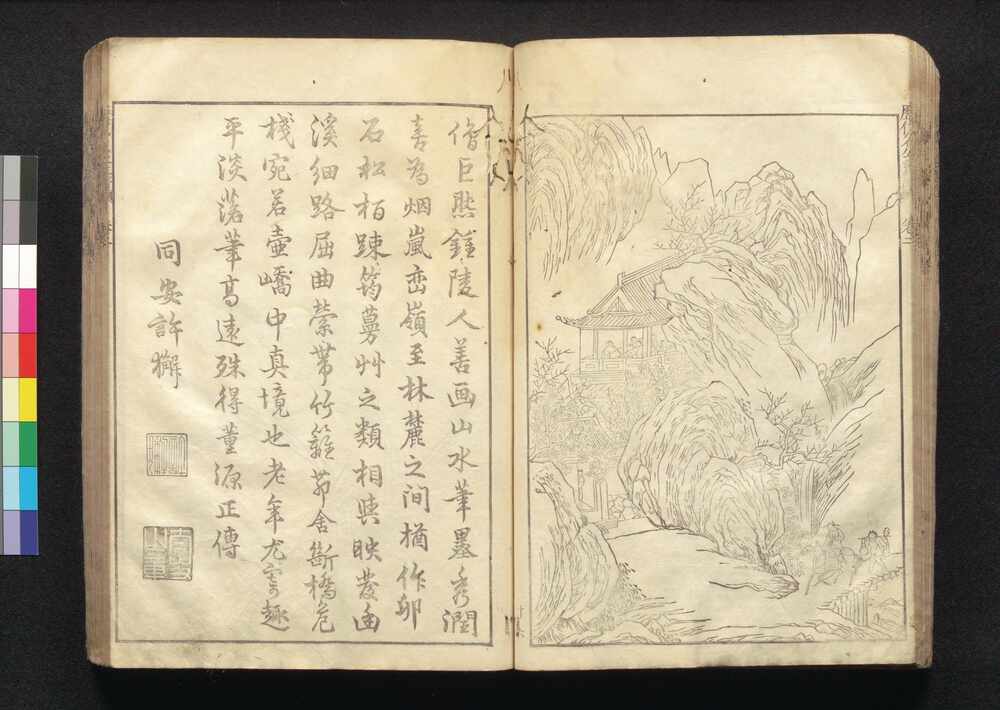 僧巨然鍾陵人善画山水筆墨秀潤
喜為烟嵐峦嶺至林麓之间猶作卵
石松柏踈筠蔓艸之類相與映發幽
溪细路屈曲縈帯竹籬茆舍断橋危
棧宛若壷嶠中真境也老年尤寄趣
平淡落筆高遠殊得董源正傳
同安許獬